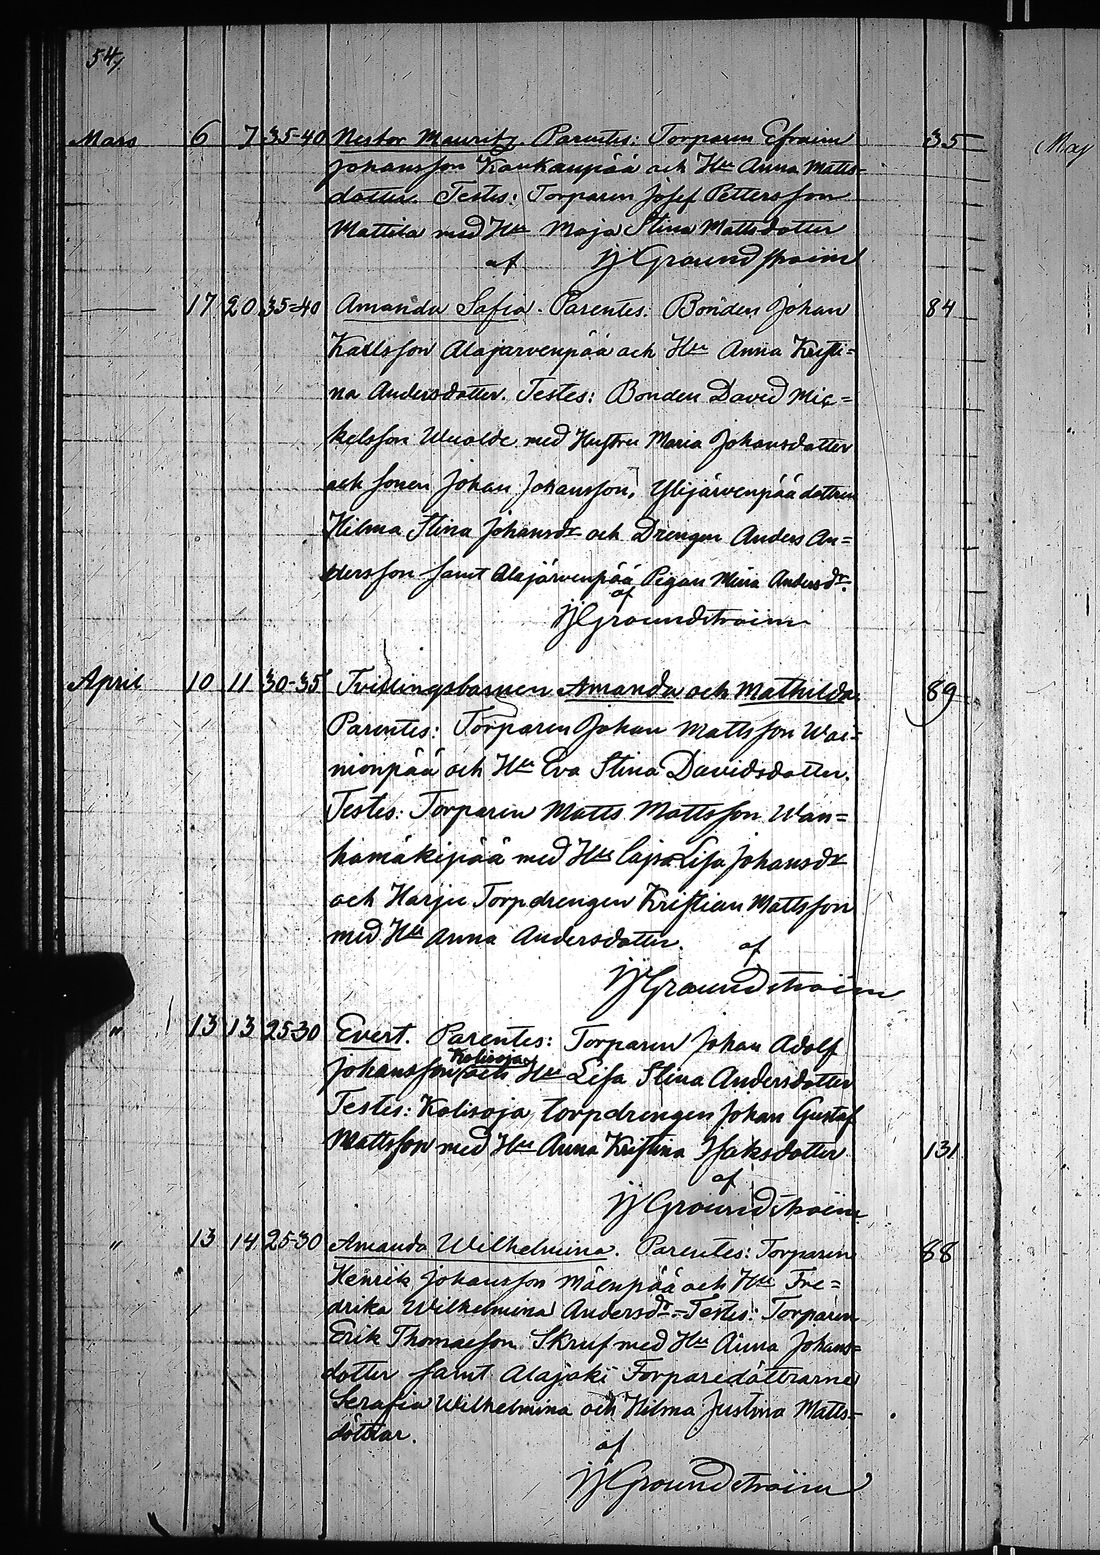 54,
Mars 6 7 35-40 Nestor Mauritz. Parentes: Torparen Efraim 35
Johansson Kaukaupää och Hu Anna Matts-
dotter. Testes: Torparen Josef Pettersson
Mattila med Hu Maja Stina Mattsdotter
af JJGroundstroëm
— 17 20 35-40 Amanda Safia. Parentes: Bonden Johan 84
Karlsson Alajarvenpää och Hu Anna Kristi=
na Andersdotter. Testes: Bonden David Mic=
kelsson Wuolde med Hustru Maria Johansdotter
och sonen Johan Johansson, Ylijärvenpää dottren
Hilma Stina Johansdr och Drengen Anders An=
dersson samt Alajärvenpää Pigan Miina Andersdr.
af
JJGroundstroëm
April 10 11 30-35 Tvillingsbarnen Amanda och Mathilda. 89
Parentes: Torparen Johan Mattsson Wai=
nionpää och Hu Eva Stina Davidsdotter.
Testes: Torparen Matts Mattsson Wan=
hamäkipää med Hu Cajsa Lisa Johansdr
och Harju Torpdrengen Kristian Mattsson
med Hu Anna Andersdotter. af
JJGroundstroëm
" 13 13 25-30 Evert. Parentes: Torparen Johan Adolf
Kolisoja
Johansson och Hu Lisa Stina Andersdotter
Testes: Kolisoja torpdrengen Johan Gustaf
Mattsson med Hu Anna Kristina Isaksdotter 131
af
JJGroundstroëm
" 13 14 25-30 Amanda Wilhelmina. Parentes: Torparen 88
Henrik Johansson Mäenpää och Hu Fre=
drika Wilhelmina Andersdr.- Testes: Torparen
Erik Thomasson Skruf med Hu Anna Johans=
dotter samt Alajoki Torparedöttrarne
Serafia Wilhelmina och Hilma Justina Matts=
döttrar.
af
JJGroundstroëm
Maj